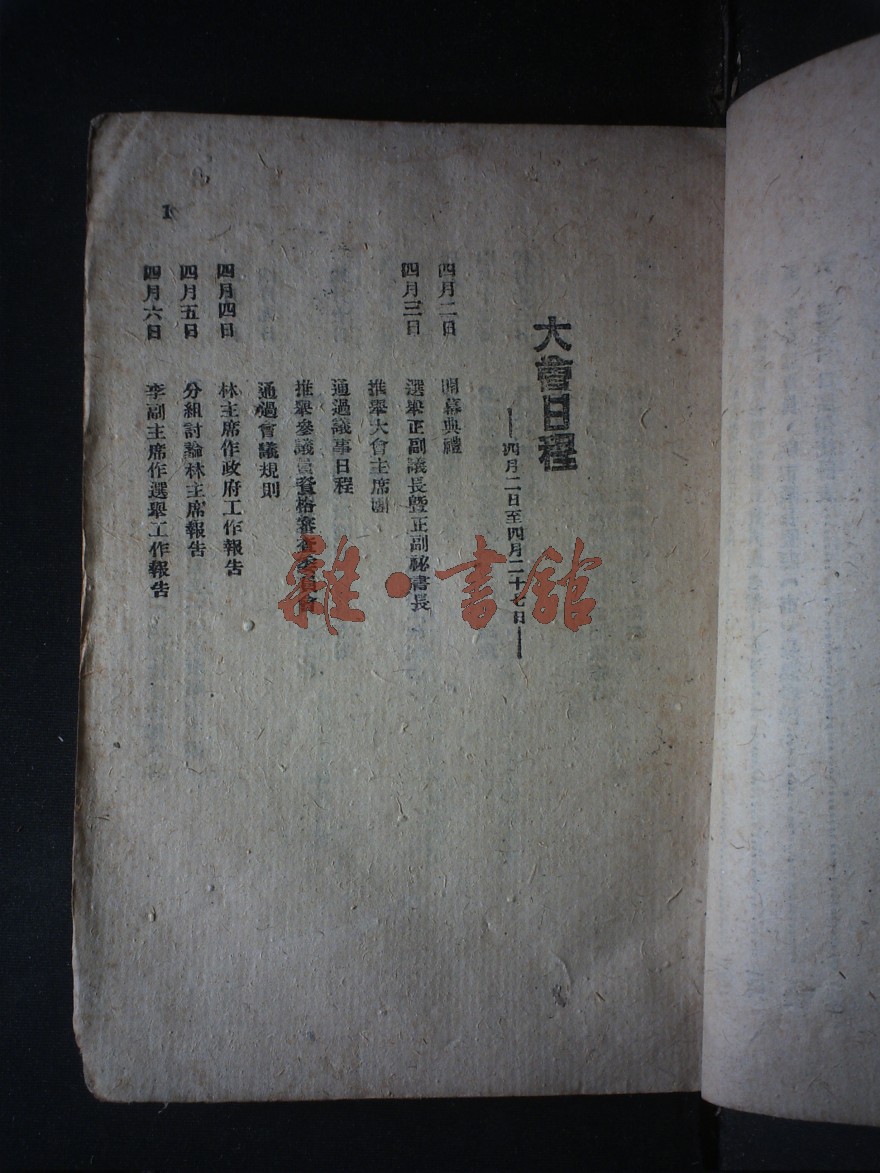 大會日程
——四月二日至四月二十七日——
四月二日 開幕典禮
四月三日 選舉正副議長暨正副祕書長
推舉大會主席團
通過議事日程
推舉參議員資格審查委員會
通過會議規則
四月四日 林主席作政府工作報告
四月五日 分組討論林主席報告
四月六日 李副主席作選舉工作報告
1
雜·書館